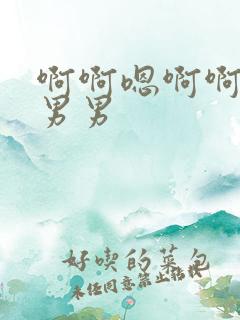 啊啊嗯啊啊
男男
好喫的菜包
未经同意禁止转载